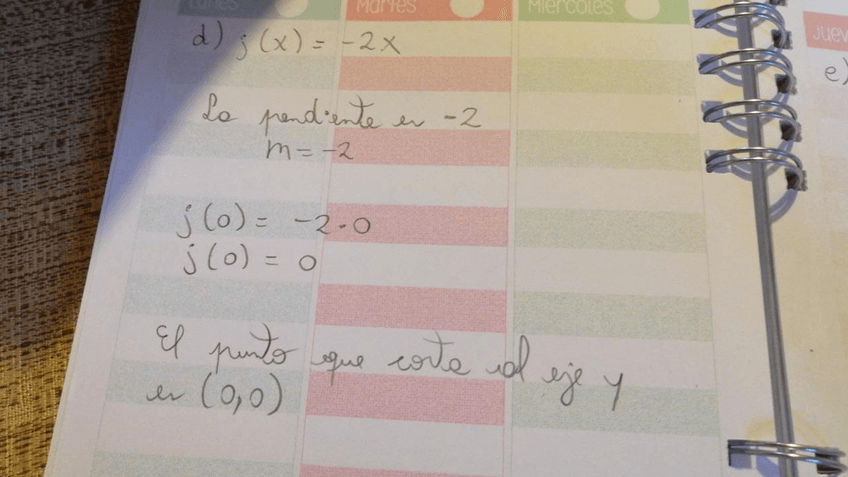 Lunes
Martes
Miércoles
Juev
d) j(x) = -2x
e)
La pendiente es -2
m = -2
j(0) = -2·0
j(0) = 0
El punto que corta al eje y
es (0,0)